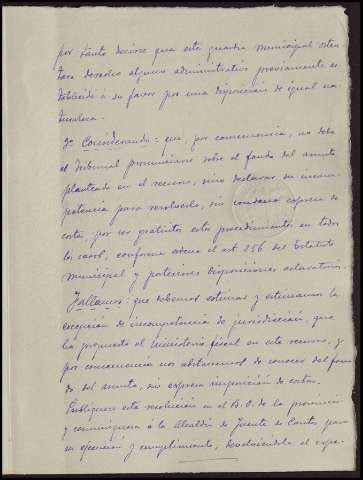 por tanto decirse que este guardia municipal osten-
tara derecho alguno administrativo previamente es-
tablecido a su favor por una disposición de igual na-
turaleza.
2º Considerando: que, por consecuencia, no debe
el Tribunal pronunciarse sobre el fondo del asunto
planteado en el recurso, sino declarar su incom-
petencia para resolverlo, sin condena expresa de
costas, por ser gratuitos estos procedimientos en todos
los casos, conforme ordena el art. 256 del Estatuto
Municipal y posteriores disposiciones aclaratorias.
Fallamos: que debemos estimar y estimamos la
excepción de incompetencia de jurisdicción, que
ha propuesto el Ministerio fiscal en este recurso, y
por consecuencia nos abstenemos de conocer del fon-
do del asunto, sin expresa imposición de costas.
Publíquese esta resolución en el B. O. de la provincia
y comuníquese a la Alcaldía de Fuente de Cantos para
su ejecución y cumplimiento, devolviéndole el expe-